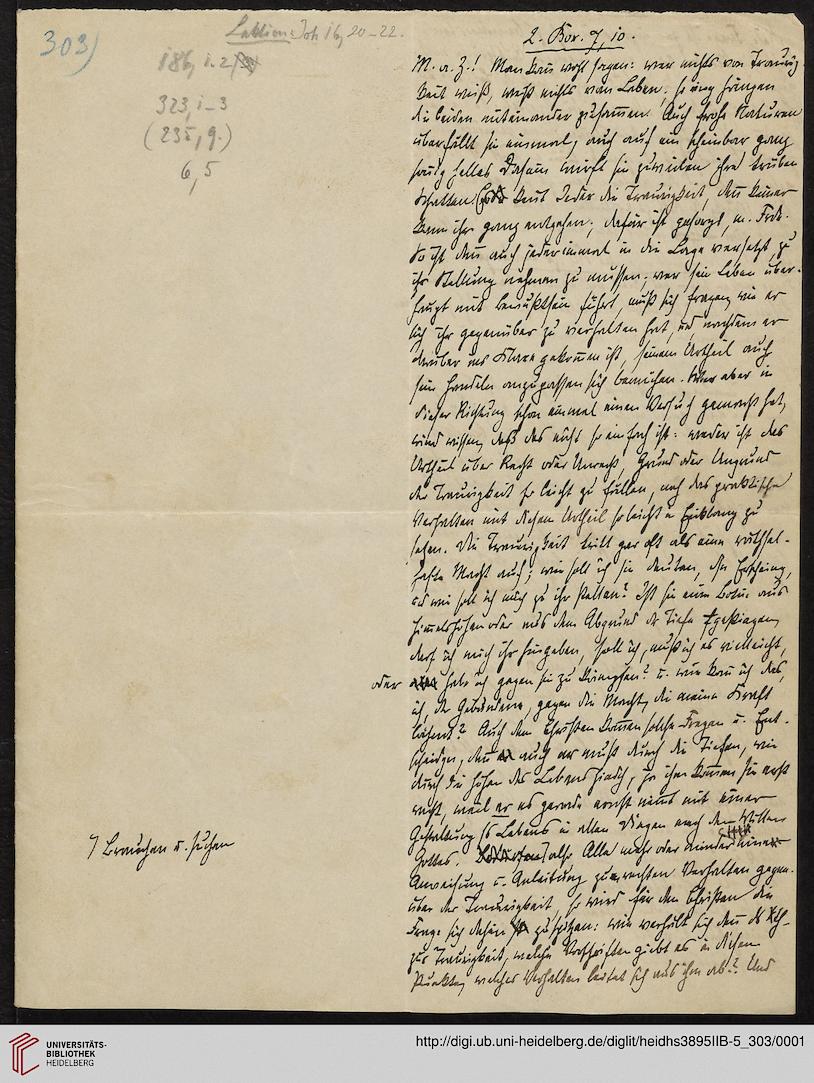 303)
Lektion: Joh 16, 20-22.
186, 1. 2
323, 1-3
(235, 9.)
6, 5
2. Kor. 7, 10.
M. a. Z.! Man kann wohl sagen: wer nichts von Traurig-
keit weiß, weiß nichts vom Leben; so eng hängen
die beiden miteinander zusammen. Auch frohe Naturen
überfällt sie einmal, auch auf ein scheinbar ganz
helles Dasein wirft sie zuweilen ihre trüben
Schatten. kennt Jeder die Traurigkeit, denn keiner
kann ihr ganz entgehen; dafür ist gesorgt, m. Frde.
So ist denn auch jeder einmal in die Lage versetzt, zu
ihr Stellung nehmen zu müssen; wer sein Leben über-
haupt mit Bewußtsein führt, muß sich fragen, wie er
sich ihr gegenüber zu verhalten hat, und nachdem er
darüber ins Klare gekommen ist, seinem Urtheil auch
sein Handeln anzupassen sich bemühen. Wer aber in
dieser Richtung schon einmal einen Versuch gemacht hat,
wird wissen, daß das nicht so einfach ist: weder ist das
Urtheil über Recht oder Unrecht, Grund oder Ungrund
der Traurigkeit so leicht zu fällen, noch das praktische
Verhalten mit diesem Urtheil so leicht in Einklang zu
setzen. Die Traurigkeit tritt gar oft als eine räthsel-
hafte Macht auf; wie soll ich sie deuten, die Erscheinung,
und wie soll ich mich zu ihr stellen? Ist sie eine Botin aus
Himmelshöhen oder aus dem Abgrund der Tiefe gestiegen,
darf ich mich ihr hingeben, soll ich, muß ich es vielleicht,
oder habe ich gegen sie zu kämpfen? u. wie kann ich das,
ich, der Gebundene, gegen die Macht, die meine Kraft
lähmt? Auch dem Christen kommen solche Fragen u. Ent-
scheidgn, denn auch er muß durch die Tiefen, wie
durch die Höhen des Lebens hindurch, ja ihm kommen sie erst
recht, weil er es gerade ernst nimmt mit einer
Gestaltung s. Lebens in allen Dingen nach dem Willen
Gottes. also Alle mehr oder minder einer
Anweisung u. Anleitung zum rechten Verhalten gegen-
über der Traurigkeit, so wird für den Christen die
Frage sich dahin zuspitzen: wie verhält sich denn d. Xth.
zur Traurigkeit, welche Vorschriften giebt es in diesem
Punkte, welches Verhalten leitet sich aus ihm ab? Und
Brauchen u. suchen
UNIVERSITÄTS-
BIBLIOTHEK
HEIDELBERG
http://digi.ub.uni-heidelberg.de/diglit/heidhs3895IIB-5_303/0001